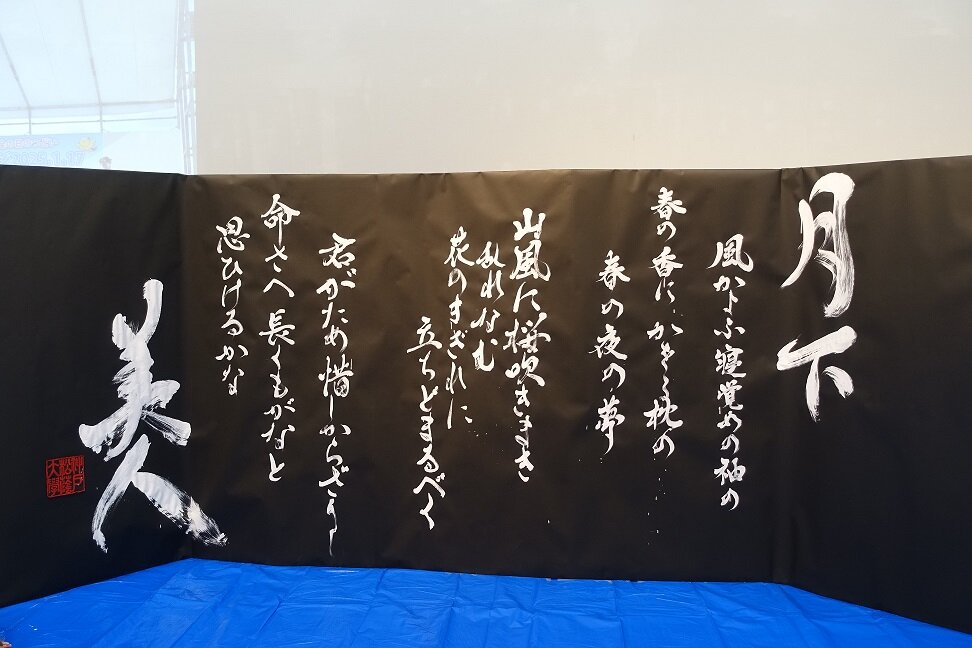 月下
風かよふ寝覚めの袖の
春の香にかをる枕の
春の夜の夢
山風に桜吹きまき
乱れなむ
花のまぎれに
立ちどまるべく
君がため惜しからざりし
命さへ長くもがなと
思ひけるかな
美人
神戸
松蔭
大學